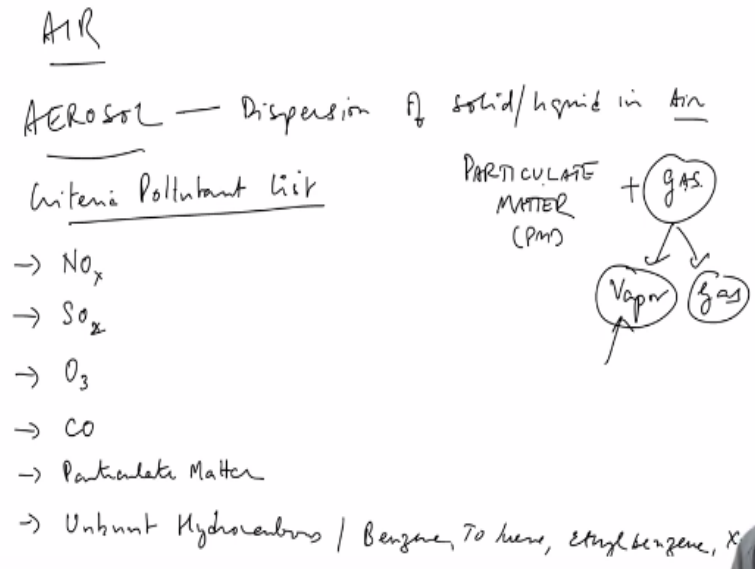 AIR
AEROSOL — Dispersion of solid/liquid in Air
Criteria Pollutant List
PARTICULATE MATTER (PM) + GAS
Vapor Gas
→ NOx
→ SO2
→ O3
→ CO
→ Particulate Matter
→ Unburnt Hydrocarbons / Benzene, Toluene, Ethylbenzene, X